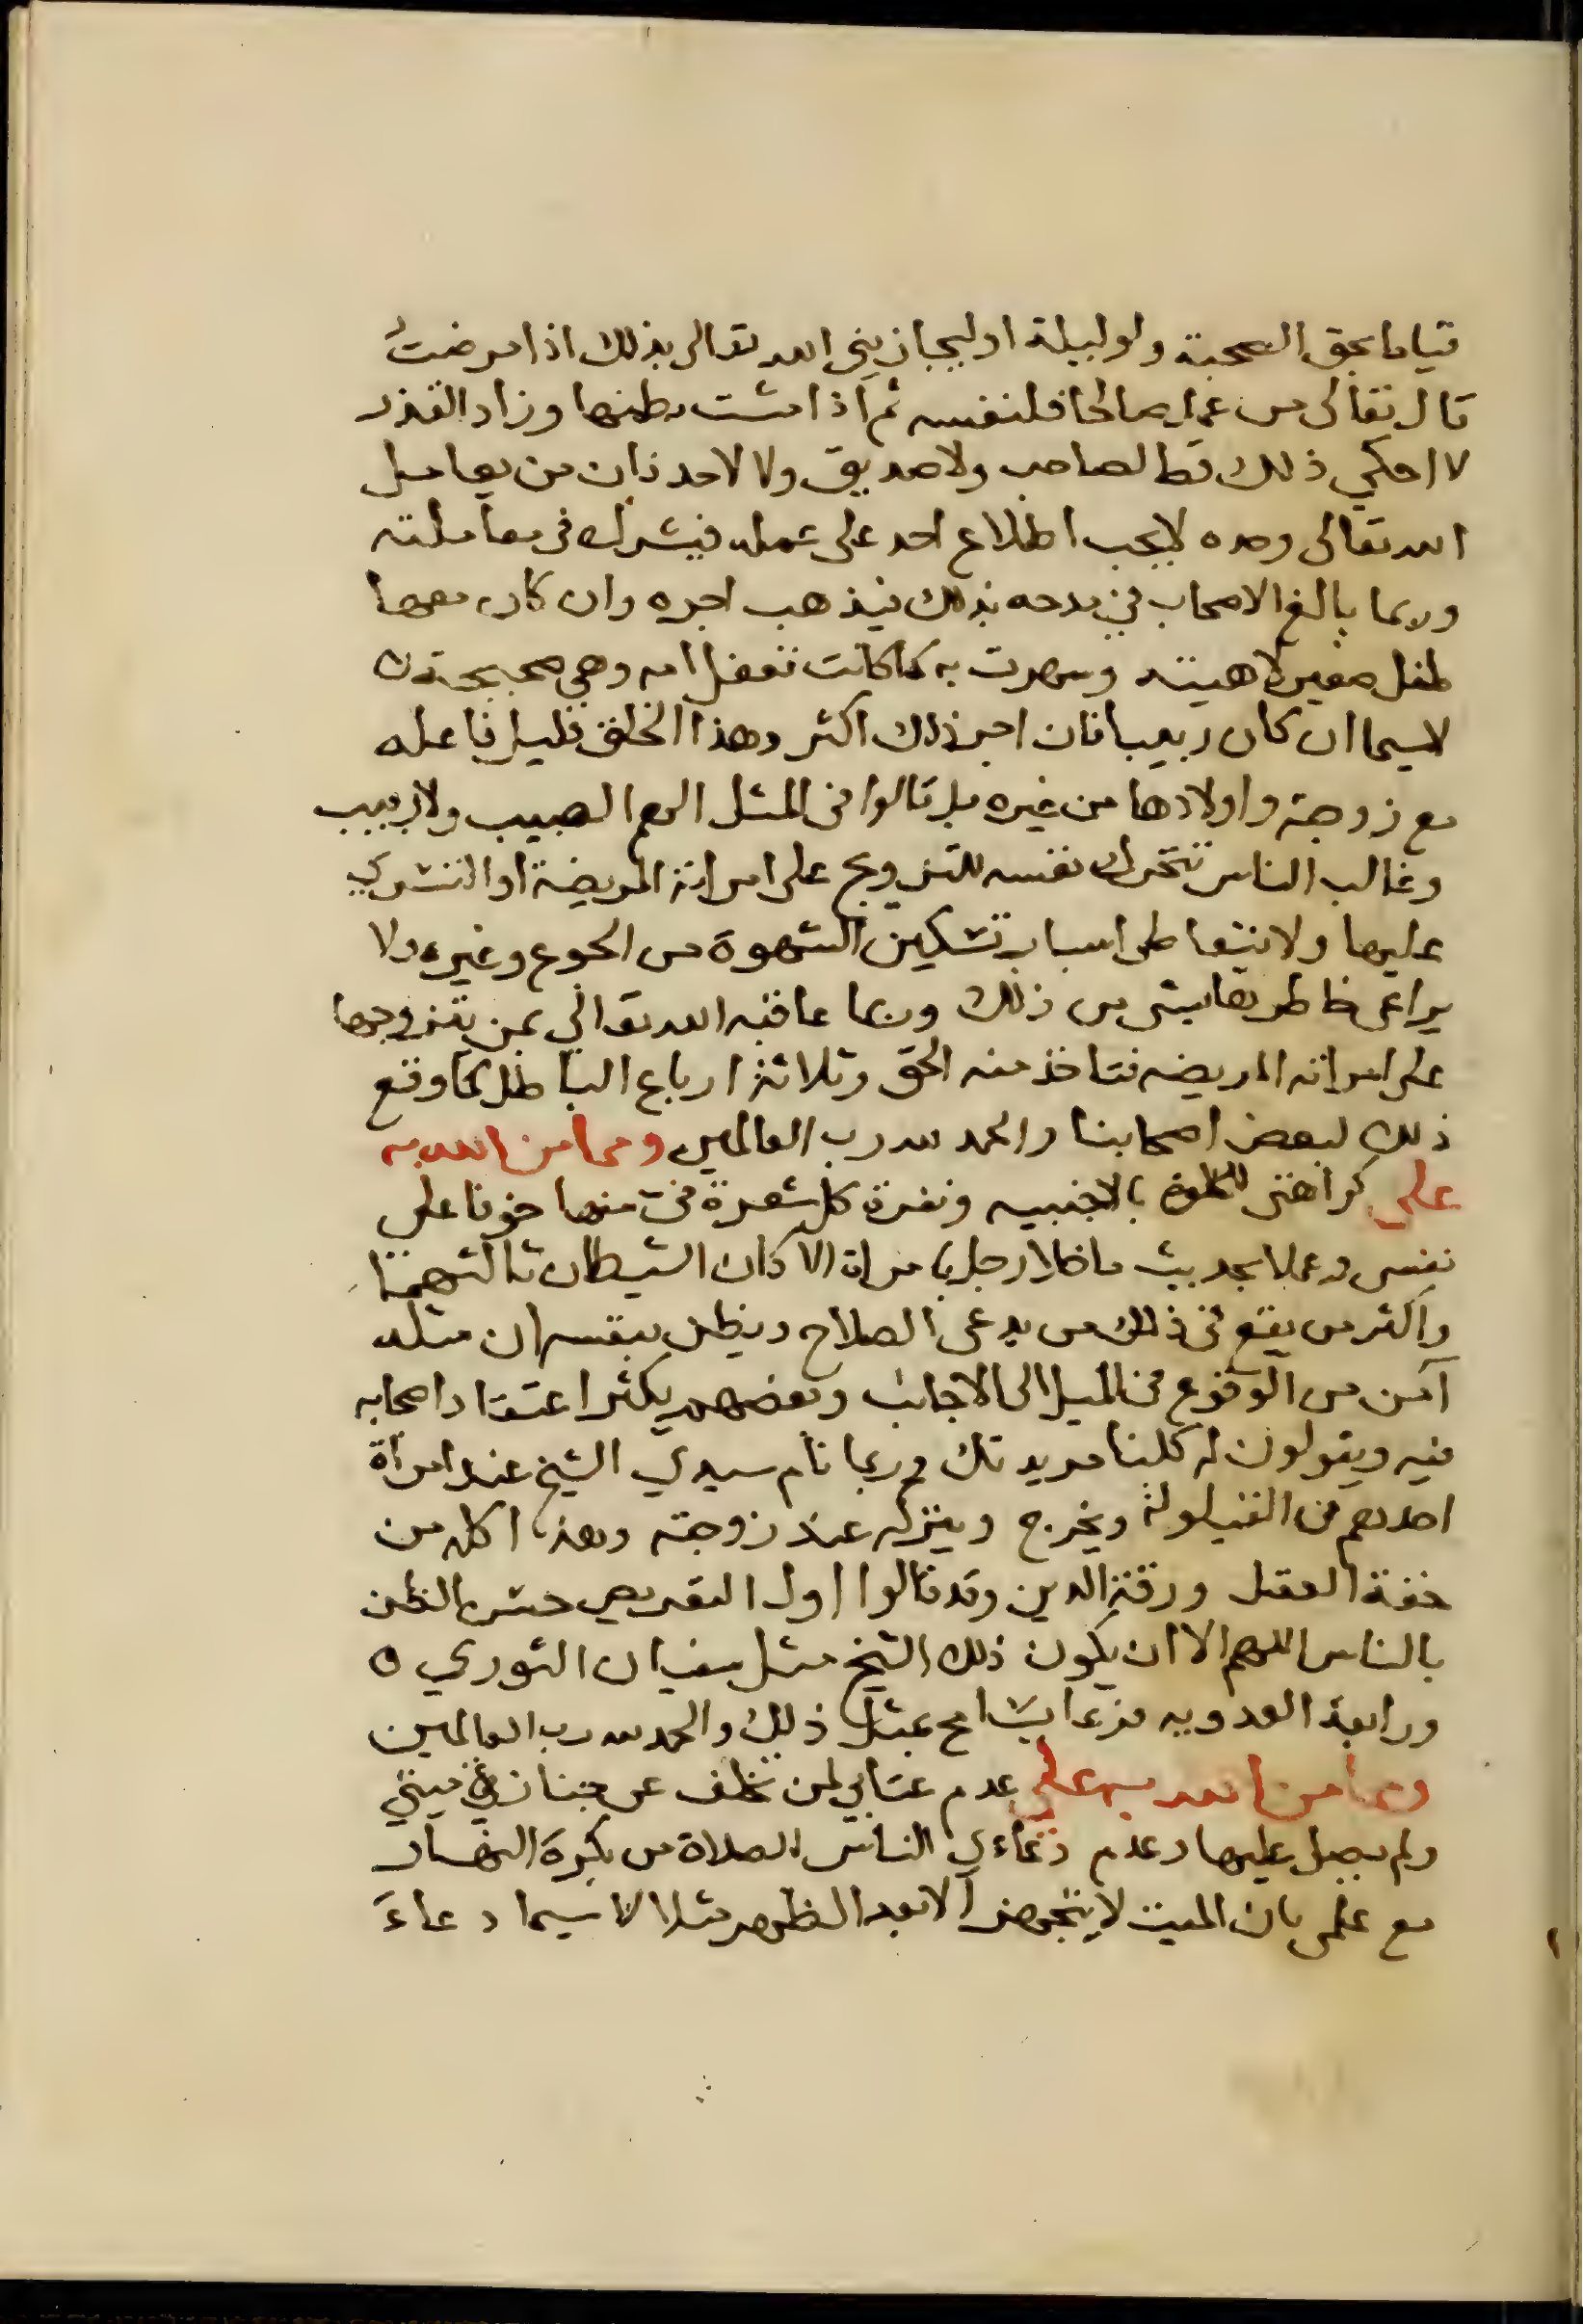 قياما بحق الصحبة ولو ليلة او ليجازيني الله تعالى بذلك اذا مرضت
قال تعالى من عمل صالحا فلنفسه ثم اذا مشت بطنها وزاد القذر
لا احكي ذلك قط لصاحب ولا صديق ولا لاحد فان من يعامل
الله تعالى وحده لا يحب اطلاع احد على عمله فيشرك في معاملته
وربما بالغ الاصحاب في مدحه بذلك فيذهب اجره وان كان معها
طفل صغير لاهيته وسهرت به كما كانت تفعل امه وهي صحيحة
لا سيما ان كان ربيبا فان اجر ذلك اكثر وهذا الخلق قليل فاعله
مع زوجة واولادها من غيره بل قالوا في المثل الصبيب ولا ربيب
وغالب الناس تتحرك نفسه للتزويج على امراته المريضة او التسري
عليها ولا يتعاطى اسباب تسكين الشهوة من الجوع وغيره ولا
يراعى خاطرها بشى من ذلك وربما عاقبه الله تعالى بمن يتزوجها
على امراته المريضه فتاخذ منه الحق وثلاثة ارباع الباطل كما وقع
ذلك لبعض اصحابنا والحمد لله رب العالمين ومما من الله به
على كراهتى للخلوة بالاجنبيه ونفرة كل شعرة في منها خوفا على
نفسى وعملا بحديث ما خلا رجل بامراة الا كان الشيطان ثالثهما
واكثر من يقع في ذلك من يدعى الصلاح ويظن بنفسه ان مثله
آمن من الوقوع في الميل الى الاجانب وبعضهم يكثر اعتقاد اصحابه
فيه ويقولون له كلنا مريدتك وربما نام سيدي الشيخ عند امرأة
احدهم في القيلولة ويخرج ويتركه عند زوجته وهذا كله من
خفة العقل ورقة الدين وقد قالوا اول التعريص حسن الظن
بالناس اللهم الا ان يكون ذلك الشيخ مثل سفيان الثوري
ورابعة العدويه فربما يتسامح بمثل ذلك والحمد لله رب العالمين
ومما من الله به على عدم عتابي لمن تخلف عن جنازة ميتي
ولم يصل عليها وعدم دعاءي الناس للصلاة من بكرة النهار
مع علمى بان الميت لا يتجهز الا بعد الظهر مثلا لا سيما دعاء